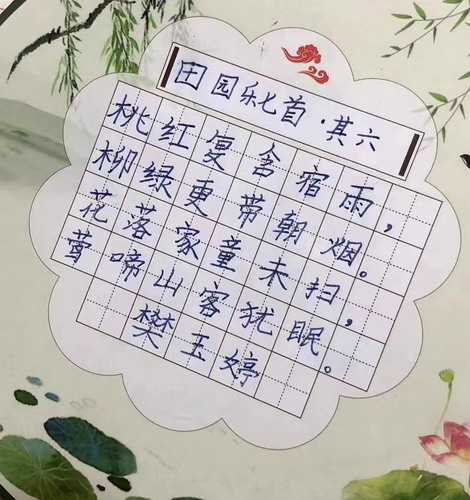 田园乐七首·其六
桃红复含宿雨，
柳绿更带朝烟。
花落家童未扫，
莺啼山客犹眠。
樊玉婷